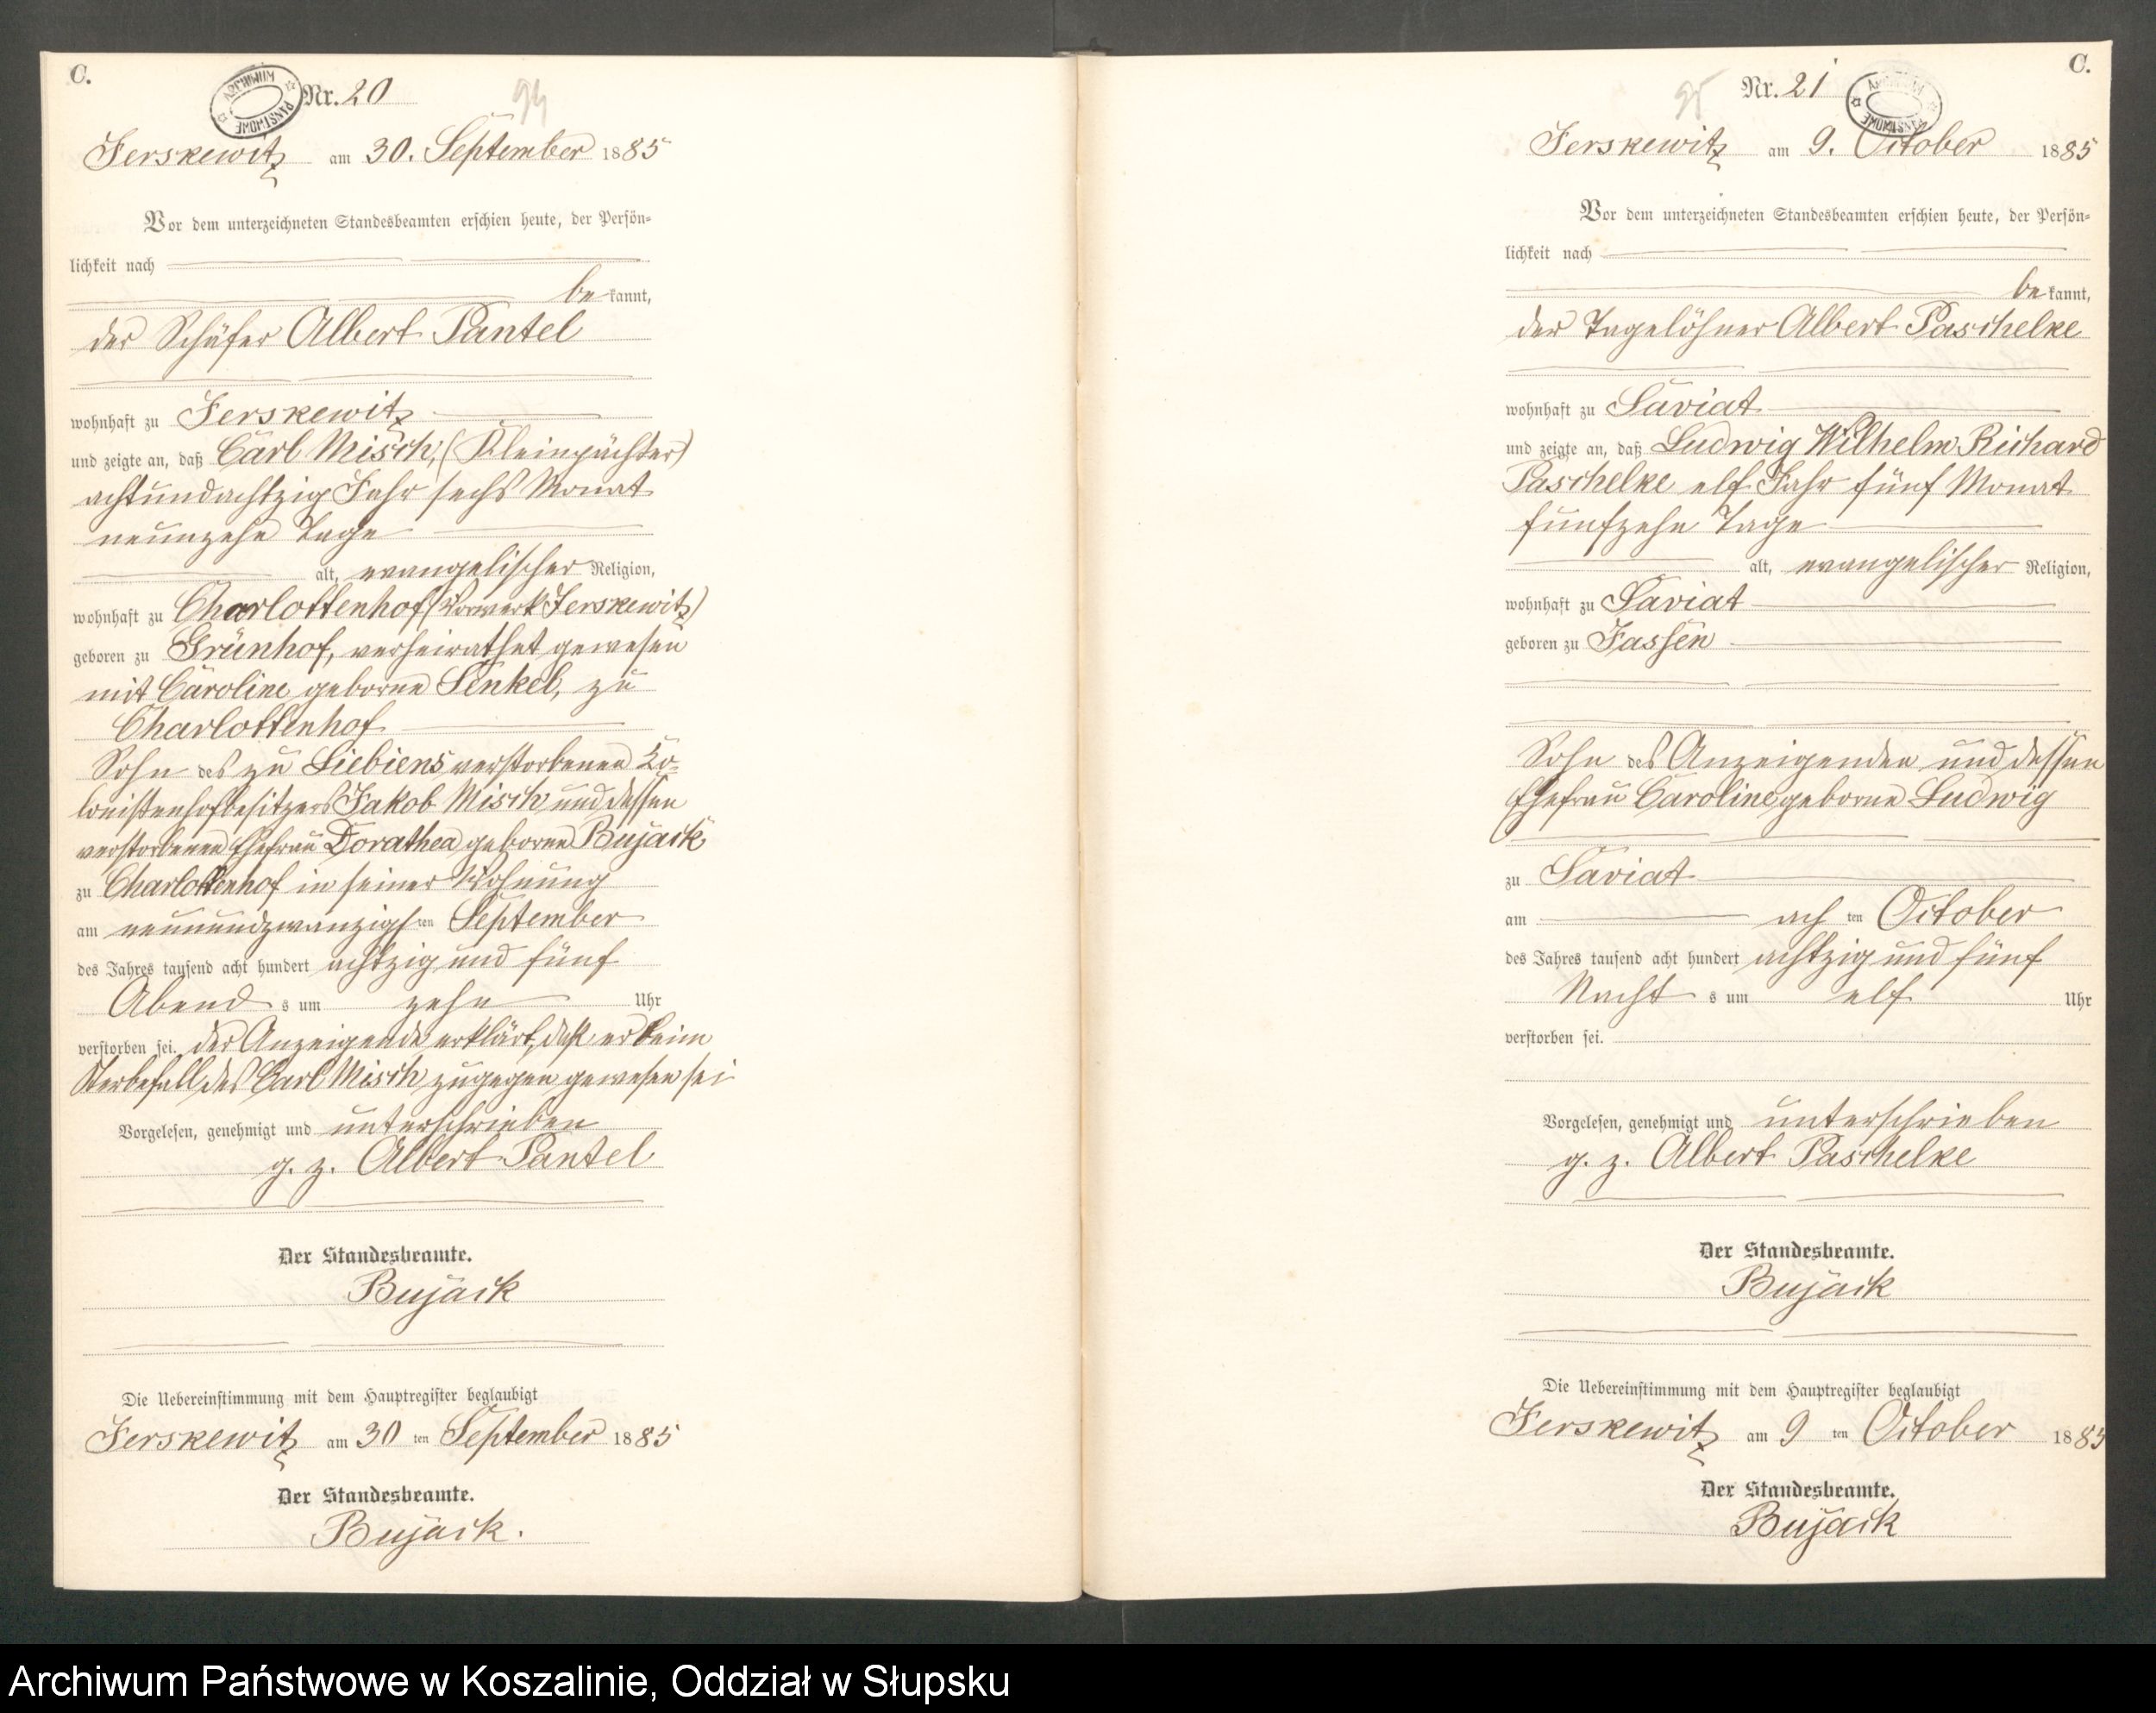 C.
ARCHIWUM PAŃSTWOWE
Nr. 20
94
Jerskewitz am 30. September 1885
Vor dem unterzeichneten Standesbeamten erschien heute, der Persön-
lichkeit nach
bekannt,
der Schäfer Albert Pantel
wohnhaft zu Jerskewitz
und zeigte an, daß Carl Misch, (Kleinpächter)
achtundachtzig Jahr sechs Monat
neunzehn Tage
alt, evangelischer Religion,
wohnhaft zu Charlottenhof (Vorwerk Jerskewitz)
geboren zu Grünhof, verheirathet gewesen
mit Caroline geborne Senkel, zu
Charlottenhof
Sohn des zu Liebiens verstorbenen Ko-
lonistenhofbesitzers Jakob Misch und dessen
verstorbenen Ehefrau Dorathea geborne Bujack
zu Charlottenhof in seiner Wohnung
am neunundzwanzigsten September
des Jahres tausend acht hundert achtzig und fünf
Abends um zehn Uhr
verstorben sei. der Anzeigende erklärt, daß er beim
Sterbefall des Carl Misch zugegen gewesen sei
Vorgelesen, genehmigt und unterschrieben
g. z. Albert Pantel
Der Standesbeamte.
Bujack
Die Uebereinstimmung mit dem Hauptregister beglaubigt
Jerskewitz am 30 ten September 1885
Der Standesbeamte.
Bujack.
C.
Nr. 21
ARCHIWUM PAŃSTWOWE
95
Jerskewitz am 9. October 1885
Vor dem unterzeichneten Standesbeamten erschien heute, der Persön-
lichkeit nach
bekannt,
der Tagelöhner Albert Paschelke
wohnhaft zu Saviat
und zeigte an, daß Ludwig Wilhelm Richard
Paschelke elf Jahr fünf Monat
funfzehn Tage
alt, evangelischer Religion,
wohnhaft zu Saviat
geboren zu Jassen
Sohn des Anzeigenden und dessen
Ehefrau Caroline geborne Ludwig
zu Saviat
am achten October
des Jahres tausend acht hundert achtzig und fünf
Nachts um elf Uhr
verstorben sei.
Vorgelesen, genehmigt und unterschrieben
g. z. Albert Paschelke
Der Standesbeamte.
Bujack
Die Uebereinstimmung mit dem Hauptregister beglaubigt
Jerskewitz am 9 ten October 1885
Der Standesbeamte.
Bujack
Archiwum Państwowe w Koszalinie, Oddział w Słupsku